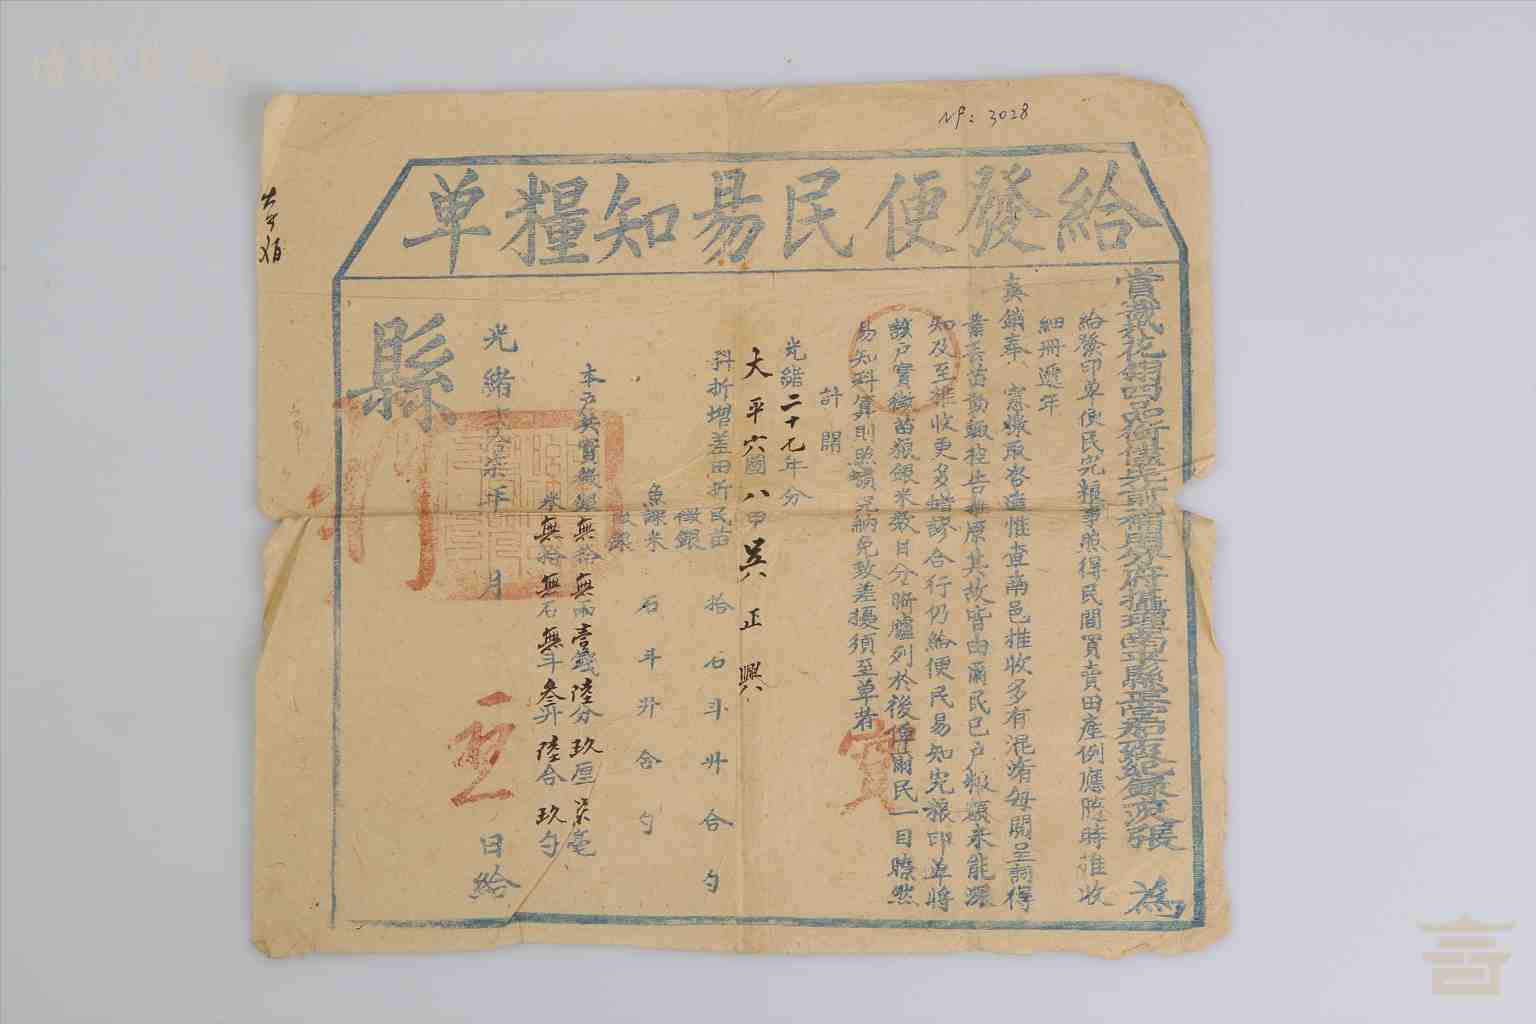 №: 3028
給發便民易知糧單
賞戴花翎 補用分府攝理南平縣正堂 紀錄 次張 為
給發印單便民完糧事照得民間買賣田產例應隨時推收
細冊遞年
奏銷奉 憲檄取 造惟查南邑推收多有混淆每閱呈詞得
業 苗 控告 原其故皆由爾民已戶糧額未能深
知及至推收更多錯謬合行仍給便民易知完糧印單將
該戶實徵苗糧銀米數目分晰爐列於後俾爾民一目瞭然
易知科算則照額完納免致差擾須至單者
計開
光緒二十七年分
大平六圖八甲吳正興
科折增差田折民苗 拾石斗升合勺
徵銀
魚課米 石斗升合勺
徵銀
本戶共實徵銀無拾無兩壹錢陸分玖厘柒毫
米無拾無石無斗叁升陸合玖勺
光緒貳拾柒年 月 日給
縣
實